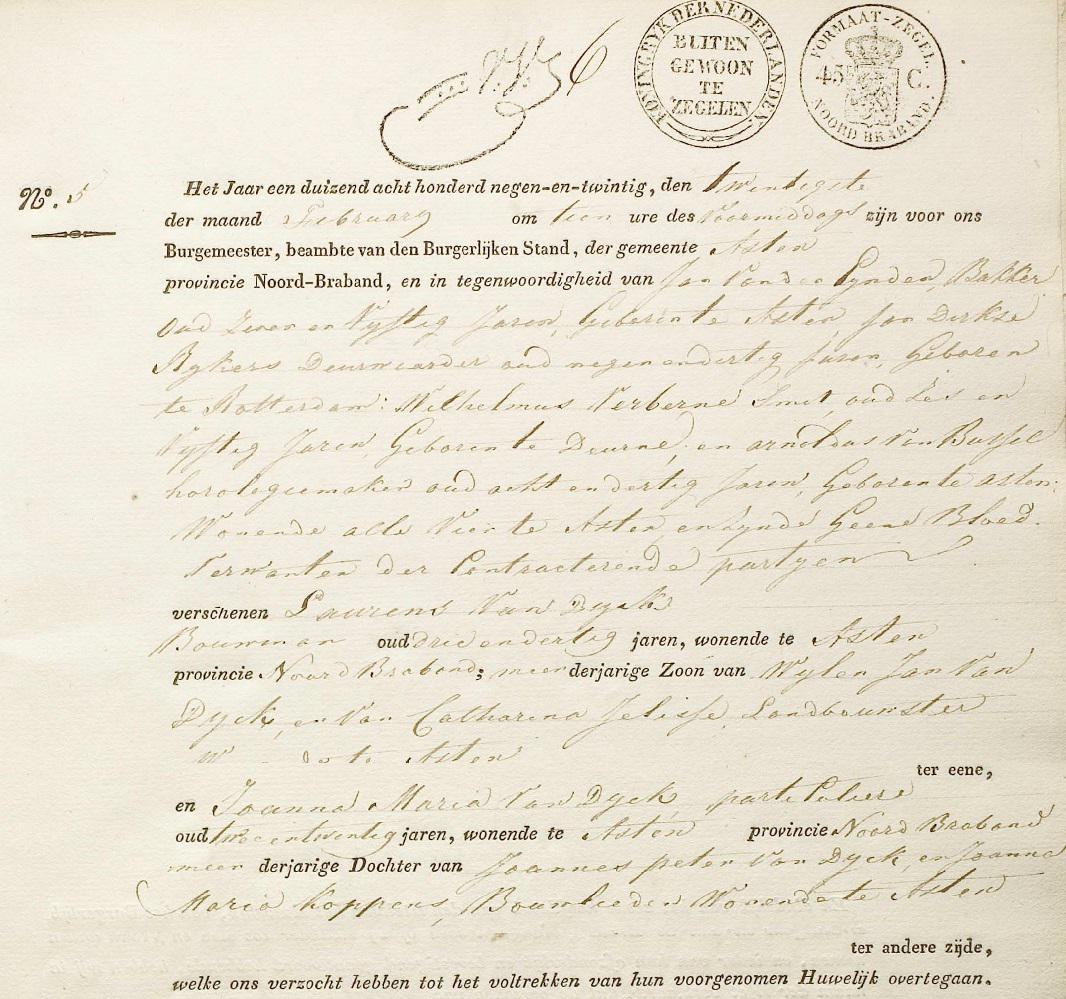 KONINGRYK DER NEDERLANDEN.
BUITEN
GEWOON
TE
ZEGELEN
FORMAAT-ZEGEL.
45 C.
NOORD BRABAND.
6
No. 5
Het Jaar een duizend acht honderd negen-en-twintig, den twentigste
der maand February om tien ure des Voormiddags zijn voor ons
Burgemeester, beambte van den Burgerlijken Stand, der gemeente Asten
provincie Noord-Braband, en in tegenwoordigheid van Jan Van den Eynden, Bakker
Oud Zeven en Vyftig Jaren, Geboren te Asten, Jan Dirkse
Rykers Deurwaarder oud negen en dertig Jaren, Geboren
te Rotterdam: Wilhelmus Verberne Smit, oud Zes en
Vyftig Jaren, Geboren te Deurne, en arnoldus Van Bussel
horologiemaker oud acht en dertig Jaren, Geboren te asten.
Wonende alle Vier te Asten, en Zynde Geene Bloed.
Verwanten der Contracterende partyen
verschenen Laurens Van Dyck
Bouwman oud drie en dertig jaren, wonende te Asten
provincie Noord Braband; meerderjarige Zoon van Wylen Jan Van
Dyck, en Van Catharina Jelisse, Landbouwster
te Asten
ter eene,
en Joanna Maria Van Dyck particuliere
oud twee en twentig jaren, wonende te Asten provincie Noord Braband
meer derjarige Dochter van Joannes peter Van Dyck, en Joanna
Maria Koppens, Bouwlieden Wonende te Asten
ter andere zijde,
welke ons verzocht hebben tot het voltrekken van hun voorgenomen Huwelijk overtegaan.